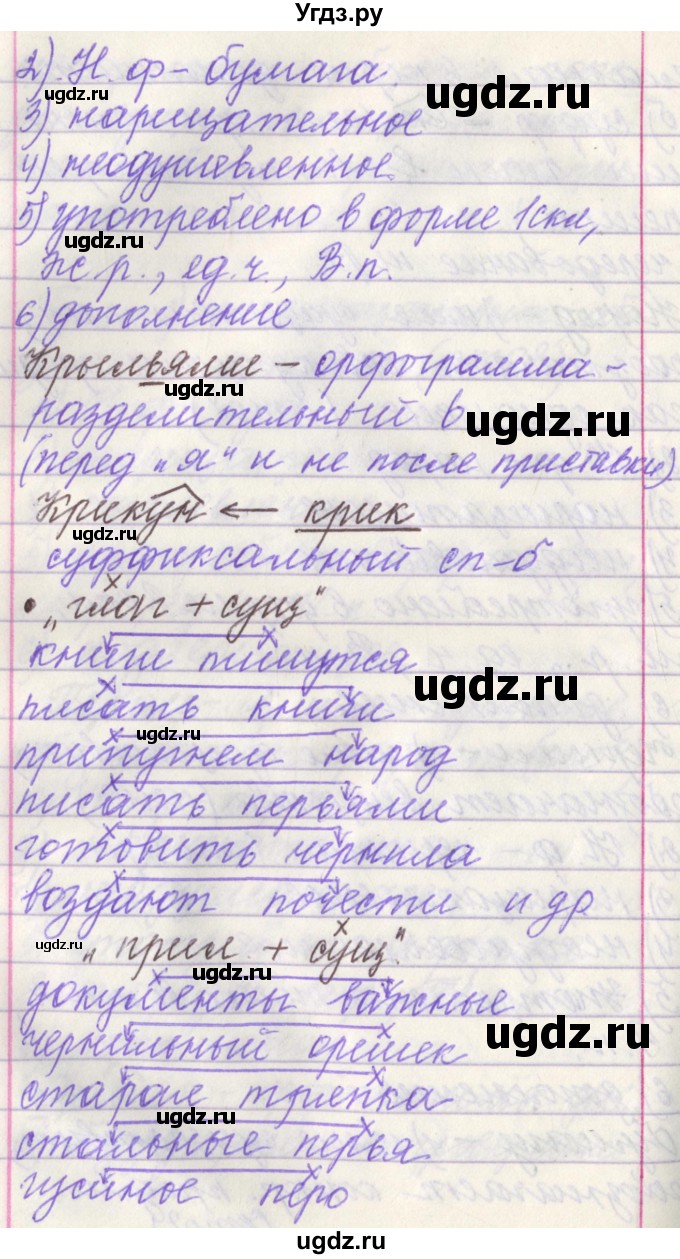 Угдз.ру
2). Н. ф – бумага.
ugdz.ru
ugdz.ru
3) нарицательное
4) неодушевленное.
5) употреблено в форме 1 скл,
ugdz.ru
ж.р., ед.ч., В.п.
6) дополнение
Крыльями – орфограмма –
ugdz.ru
разделительный ь
ugdz.ru
(перед „я" и не после приставки)
Крикун ← крик
ugdz.ru
суффиксальный сп-б
• „глаг + сущ"
книги пишутся
ugdz.ru
писать книги
ugdz.ru
припугнем народ
писать перьями
готовить чернила
воздают почести и др
ugdz.ru
„прил + сущ".
ugdz.ru
документы важные
ugdz.ru
чернильный орешек
старая тряпка
ugdz.ru
стальные перья
гусиное перо
ugdz.ru